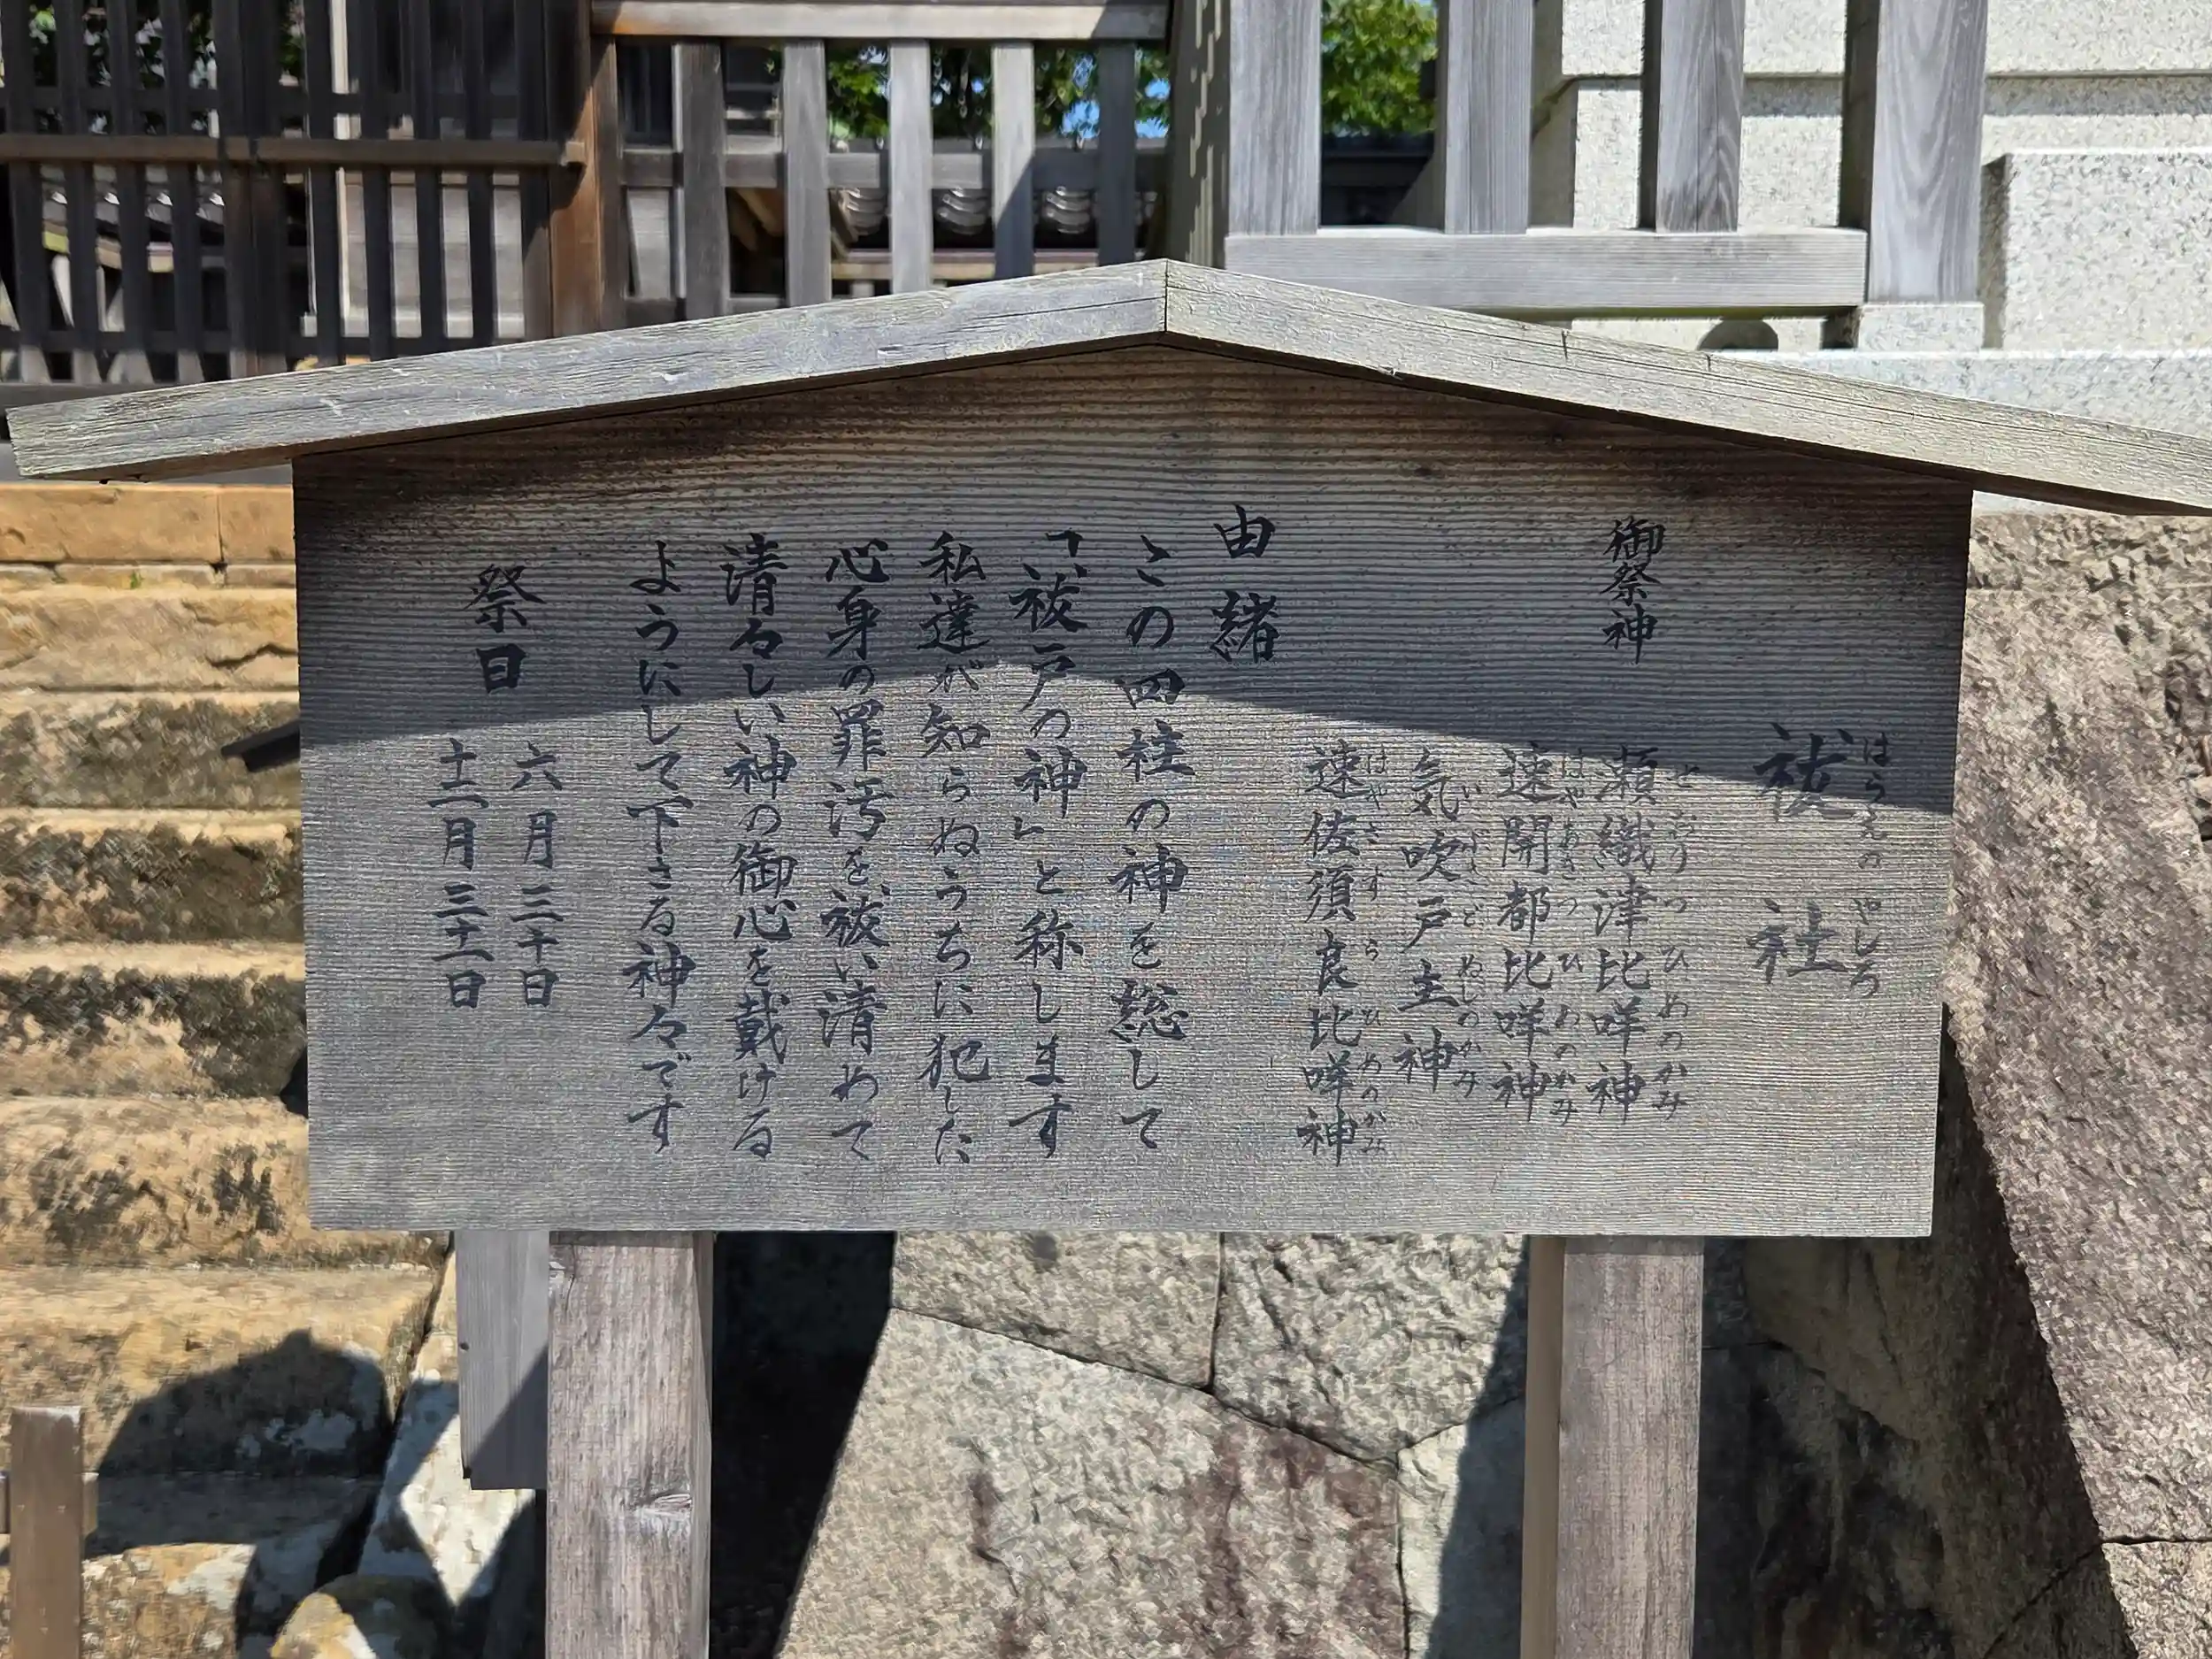 祓社
はらえのやしろ
御祭神
瀬織津比咩神
せおりつひめのかみ
速開都比咩神
はやあきつひめのかみ
気吹戸主神
いぶきどぬしのかみ
速佐須良比咩神
はやさすらひめのかみ
由緒
この四柱の神を総して
「祓戸の神」と称します
私達が知らぬうちに犯した
心身の罪汚を祓い清めて
清々しい神の御心を戴ける
ようにして下さる神々です
祭日
六月三十日
十二月三十一日